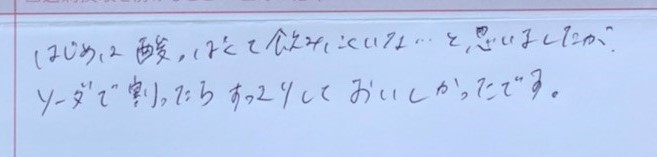 はじめは酸っぱくて飲みにくいな…と思いましたが、
ソーダで割ったらすっきりしておいしかったです。